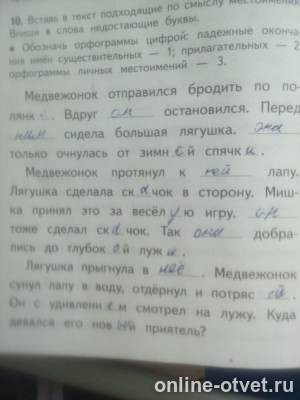 10. Вставь в текст подходящие по смыслу местоимения.
Впиши в слова недостающие буквы.
• Обозначь орфограммы цифрой: падежные оконча-
ния имён существительных — 1; прилагательных — 2
орфограммы личных местоимений — 3.
Медвежонок отправился бродить по по-
лянк е. Вдруг он остановился. Перед
ним сидела большая лягушка. Она
только очнулась от зимн ей спячк и.
Медвежонок протянул к ней лапу.
Лягушка сделала ск а чок в сторону. Миш-
ка принял это за весёл ую игру. он
тоже сделал ск а чок. Так они добра-
лись до глубок ой луж и.
Лягушка прыгнула в неё. Медвежонок
сунул лапу в воду, отдёрнул и потряс ей.
Он с удивлени ем смотрел на лужу. Куда
девался его нов ый приятель?
online-otvet.ru